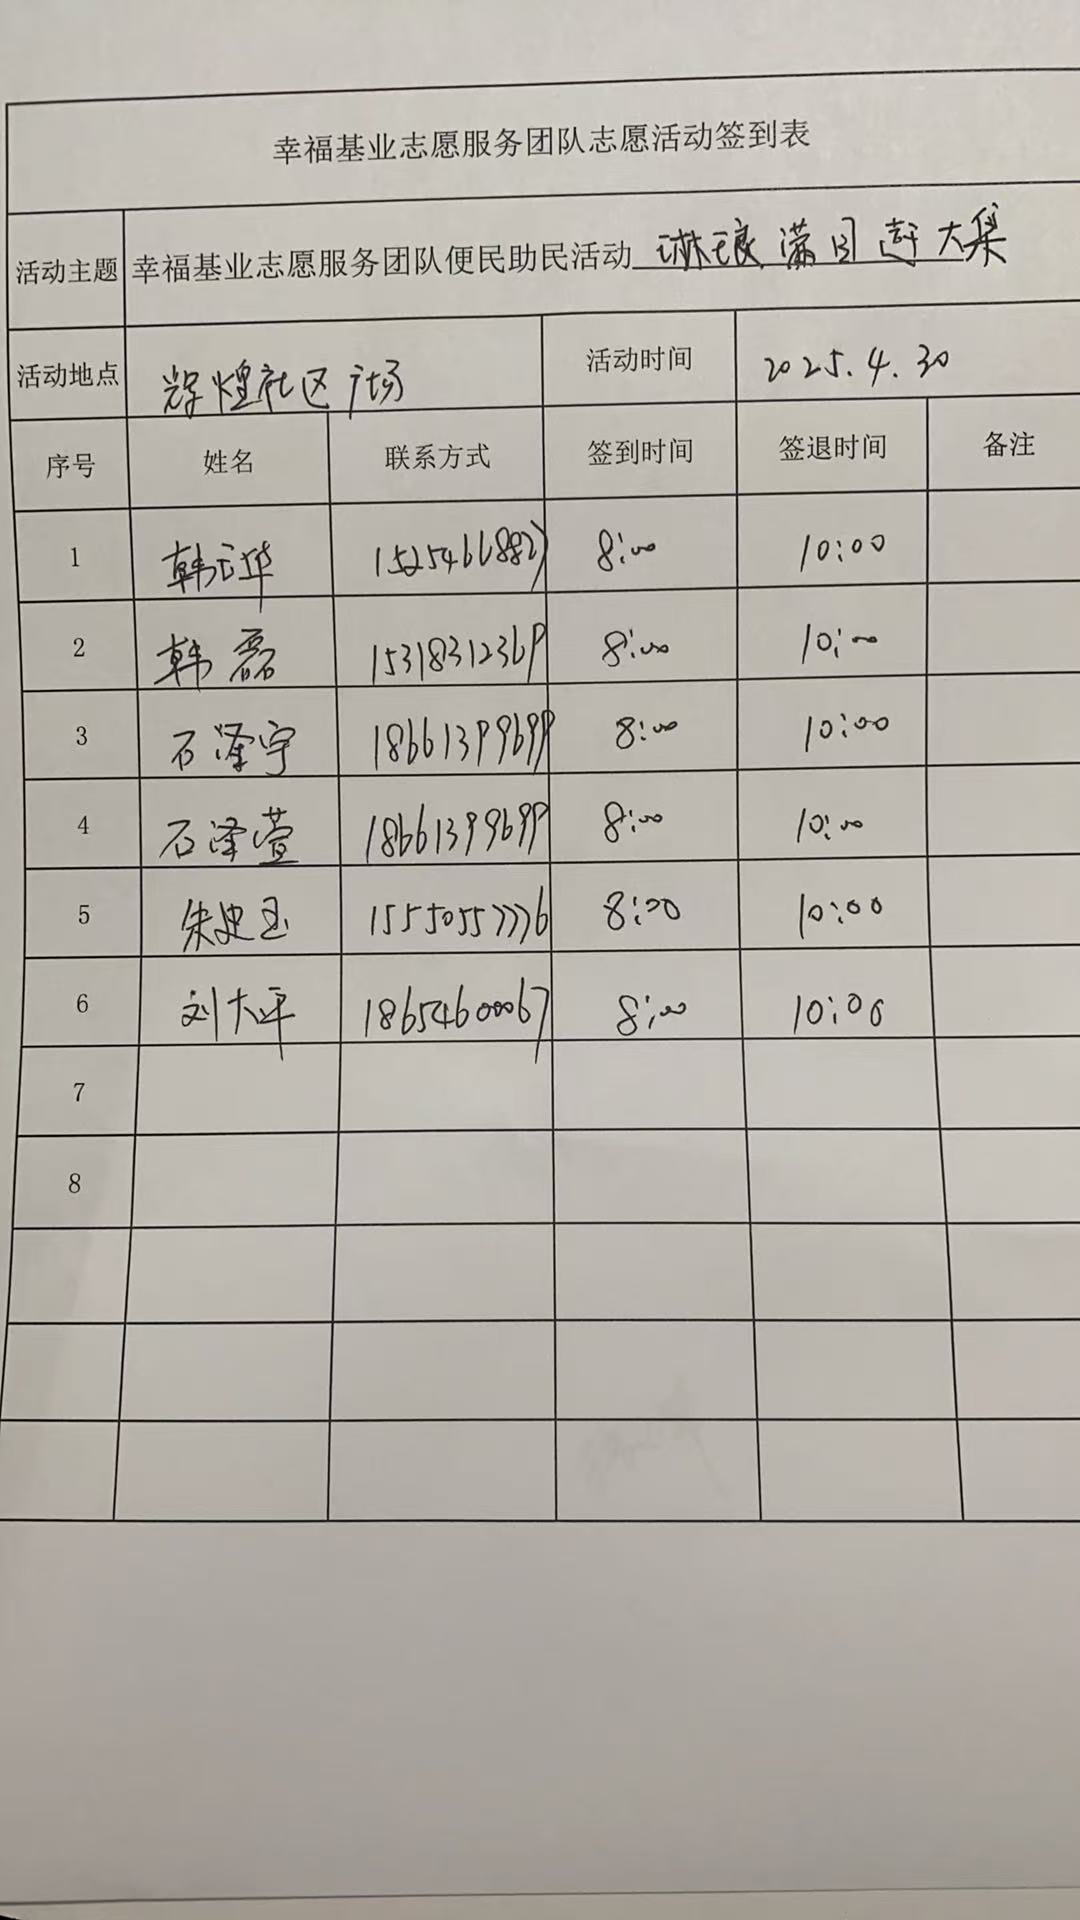 幸福基业志愿服务团队志愿活动签到表
活动主题 幸福基业志愿服务团队便民助民活动 琳琅满目赶大集
活动地点 辉煌社区广场 活动时间 2025.4.30
序号 姓名 联系方式 签到时间 签退时间 备注
1 韩云华 15254668827 8:00 10:00
2 韩磊 15318312369 8:00 10:00
3 石泽宇 18661399699 8:00 10:00
4 石泽萱 18661399699 8:00 10:00
5 朱史玉 15550557776 8:00 10:00
6 刘大平 18654600067 8:00 10:00
7
8